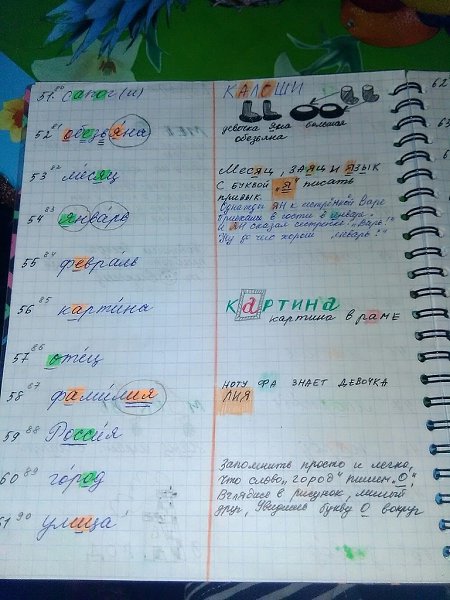 51.80 сапог(и)
КАЛОШИ
52 81 обезьяна
девочка Яна большая
обезьяна
53 82 месяц
Месяц, заяц и язык
с буквой "Я" писать
привык.
54 83 январь
Однажды Ян к сестрёнке Варе
Приехали в гости в январе.
И Ян сказал сестрёнке Варе:
55 84 февраль
56 85 картина
КАРТИНА
картина в раме
57 86 отец
58 87 фамилия
НОТУ ФА ЗНАЕТ ДЕВОЧКА
ЛИЯ
59 88 Россия
60 89 город
Запомнить просто и легко,
Что слово "город" пишем "О".
Вглядись в рисунок, милый
друг, Увидишь букву О вокруг
61 90 улица
62
63